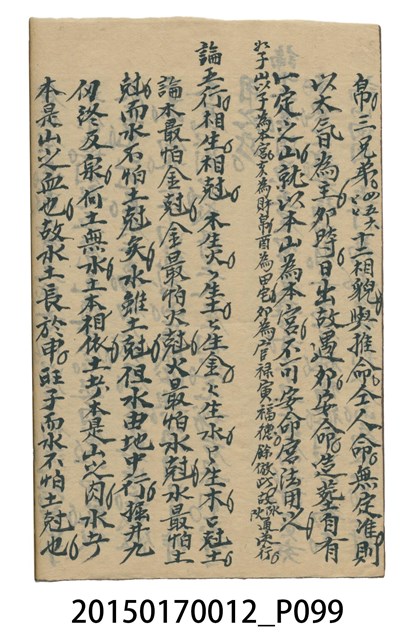 帛三兄弟四五六十二相貌與推命全人命無定准則
以太氣為主卯時日出故遇卯安命造塟自有
一定之山就以本山為本宮不可安命度法用之
如子山以子為本宮亥為財帛酉為田宅卯為官禄寅為福德餘倣此
論五行相生相尅木生火火生土土生金金生水水生木只尅土
論木最怕金尅金最怕火尅火最怕水尅水最怕土
尅而水不怕土尅矣水雖土尅但水由地中行掘井九
仞終及泉何土無水土本相依土者本是山之肉水者
本是山之血也故水土長於申旺子而水不怕土尅也
20150170012_P099